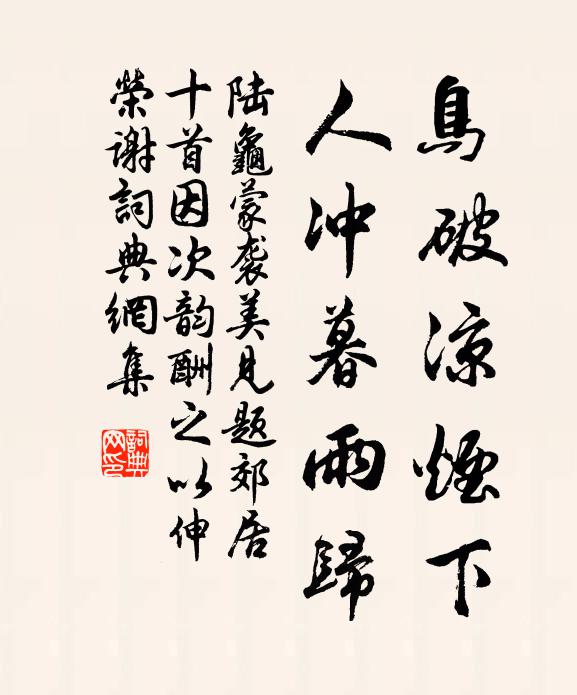 鳥破凉煙下
人冲暮雨歸
陆龜蒙袭美見题郊居
十首因次韵酬之以伸
榮谢詞典網集
詞典网印